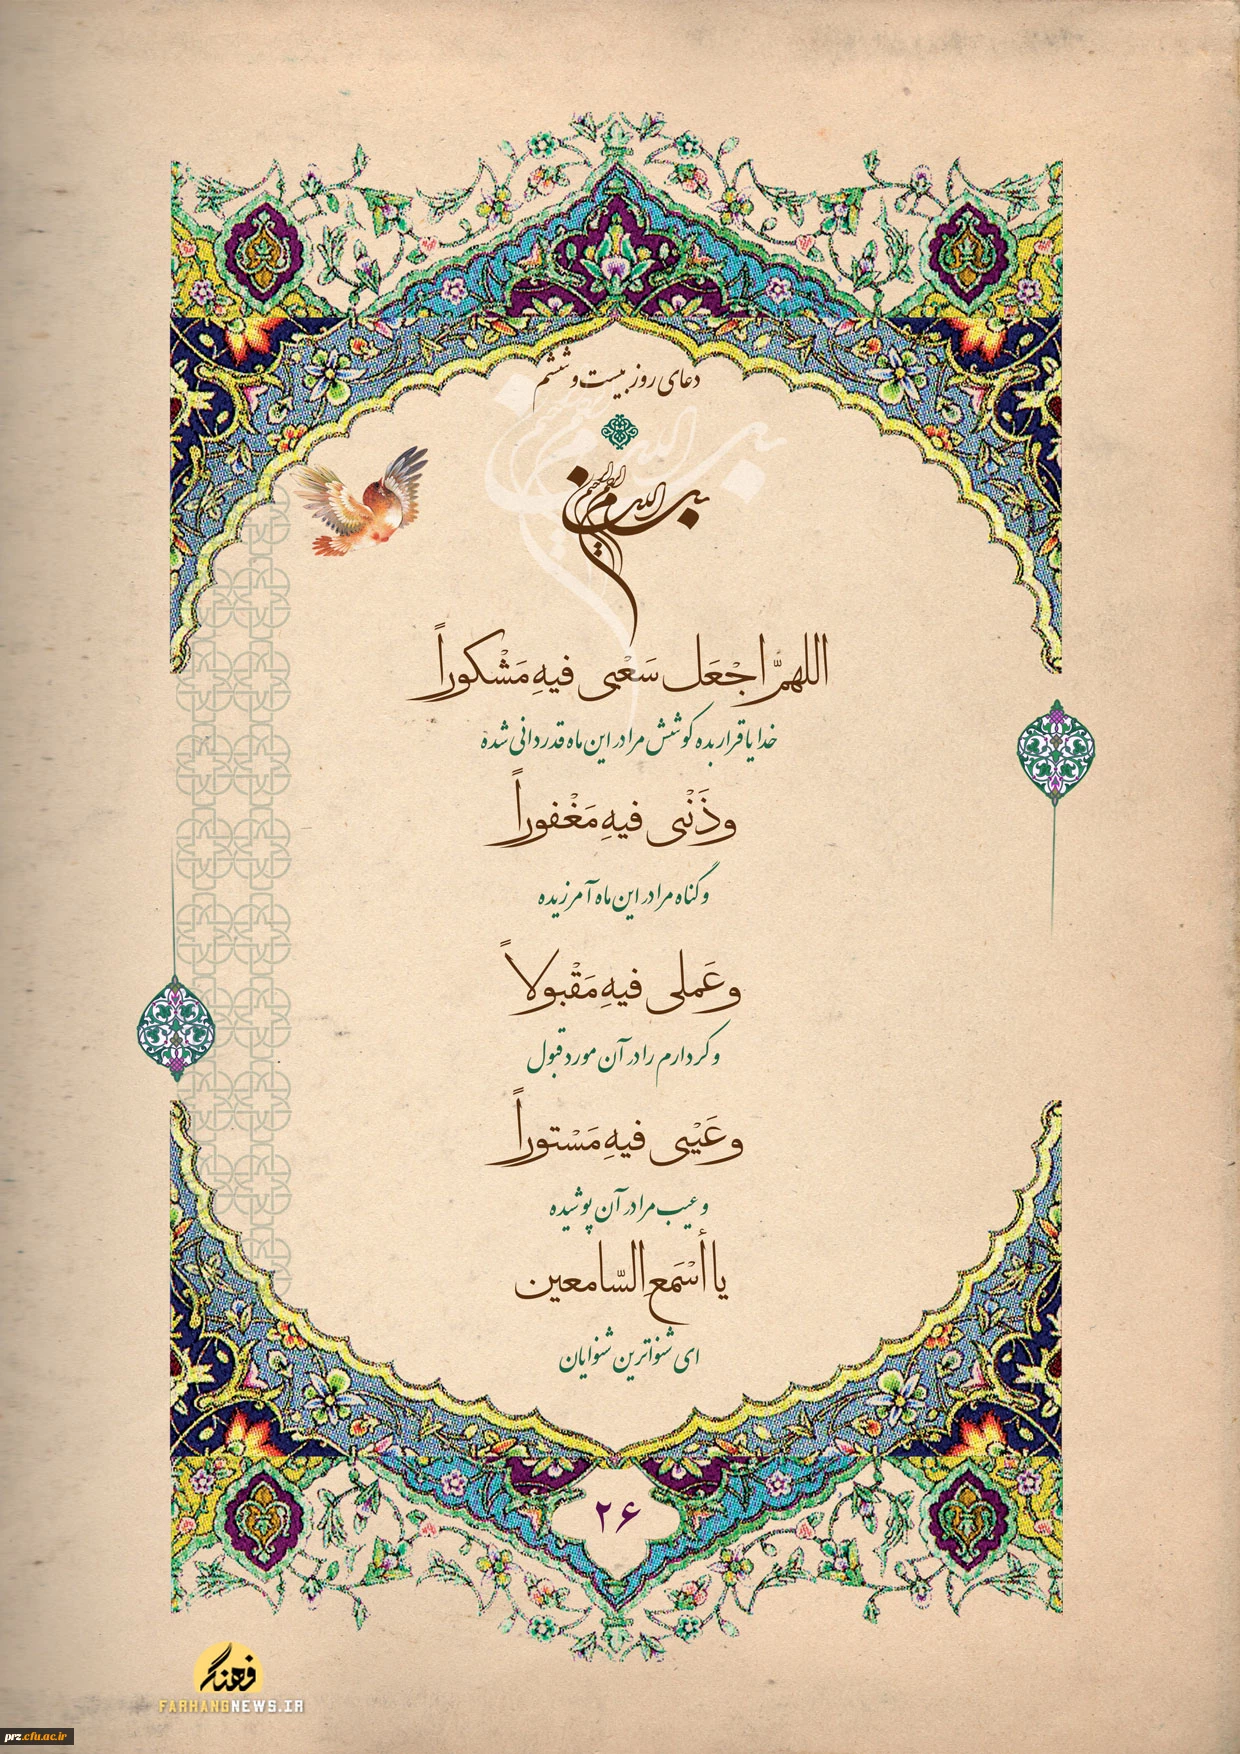 دعای روز بیست و ششم
بسم الله الرحمن الرحیم
اللهمَّ اجْعَل سَعْیی فیهِ مَشْکوراً
خدایا قرار بده کوشش مرا در این ماه قدردانی شده
وذَنْبی فیهِ مَغْفوراً
و گناه مرا در این ماه آمرزیده
وعَملی فیهِ مَقْبولاً
و کردارم را در آن مورد قبول
وعَیْبی فیهِ مَسْتوراً
و عیب مرا در آن پوشیده
یا أسْمَعِ السّامعین
ای شنواترین شنوایان
۲۶
فرهنگ
FARHANGNEWS.IR
prz.cfu.ac.ir